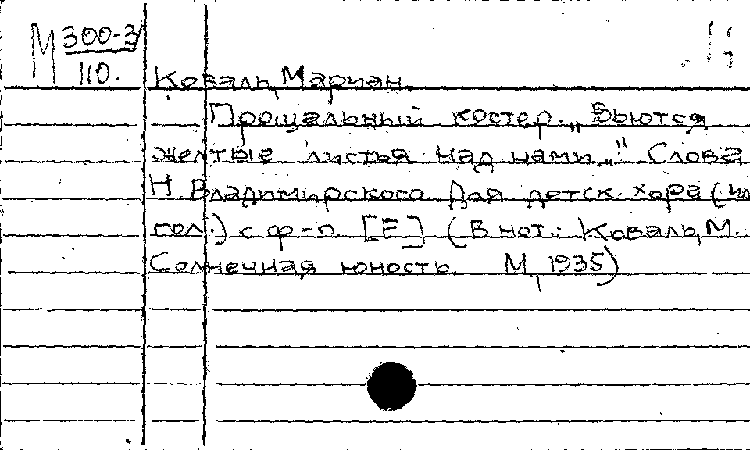 М 300-3
110.
Коваль, Мариан.
Прощальный костер. „Вьются
желтые листья над нами..." Слова
Н. Владимирского. Для детск. хора (или
гол.) с ф-п. [Е] (В нот.: Коваль, М.
Солнечная юность. М, 1935)